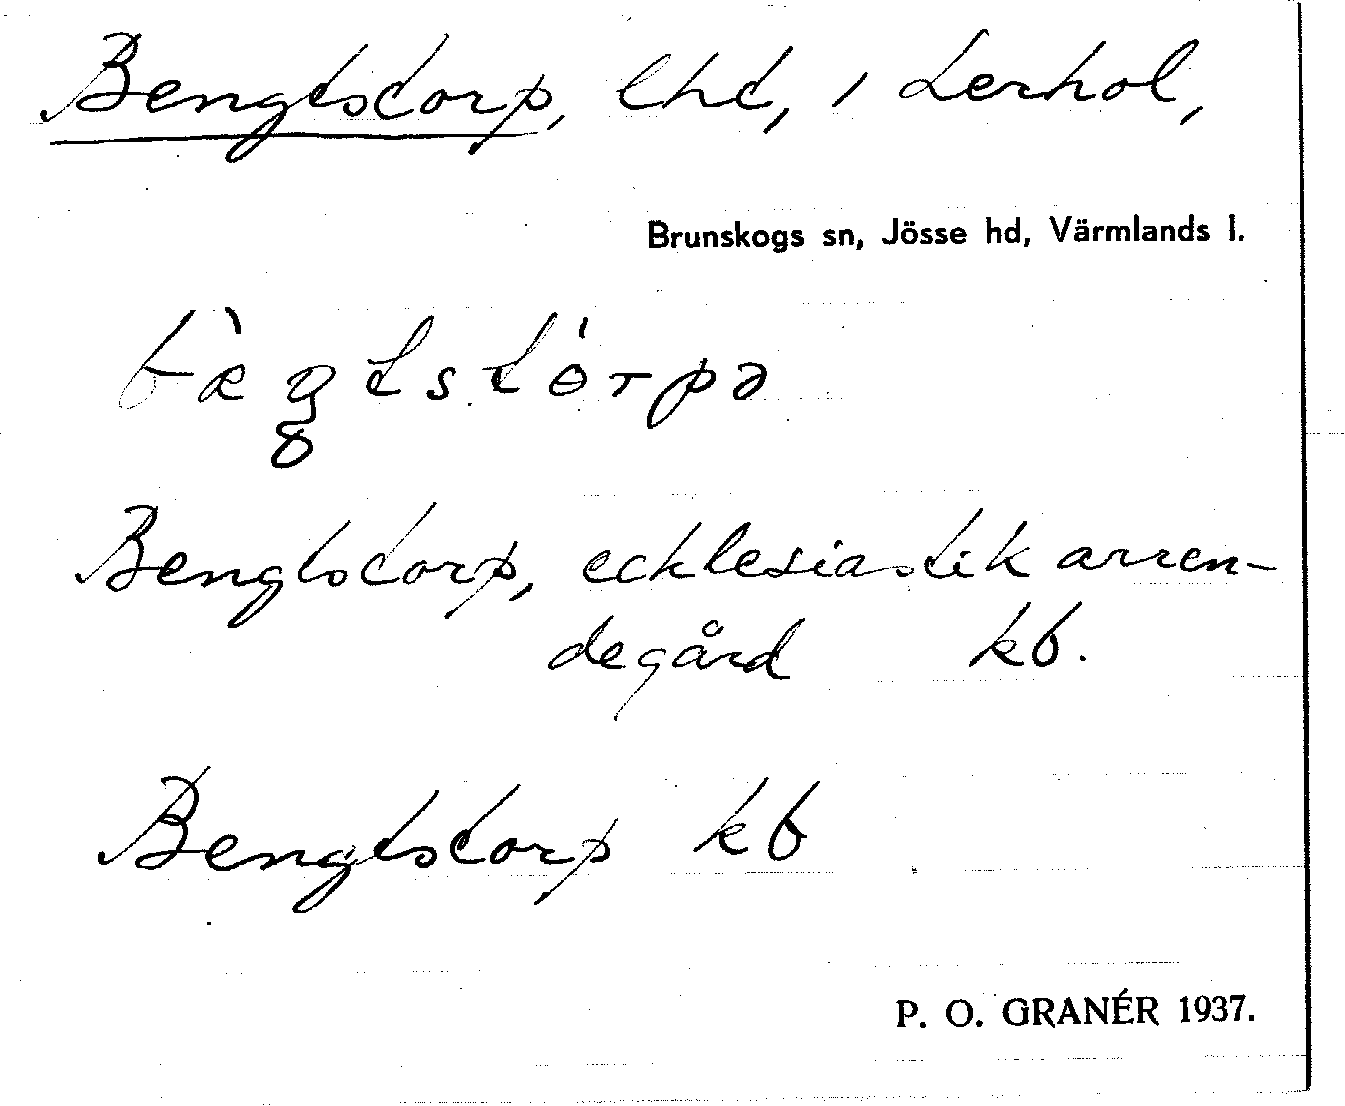 Bengtstorp, lhd, i Lerhol,
Brunskogs sn, Jösse hd, Värmlands l.
Bengtstorp, ecklesiastik arren-
degård kb.
Bengtstorp kb
P. O. GRANÉR 1937.